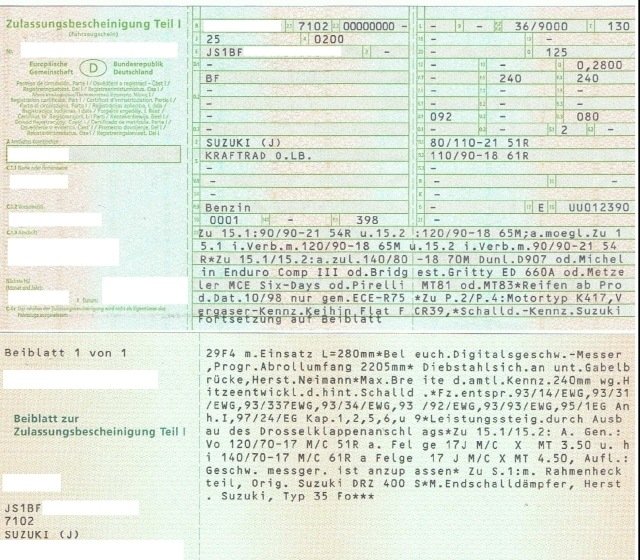 Zulassungsbescheinigung Teil I
(Fahrzeugschein)
Nr.
Europäische Gemeinschaft
D
Bundesrepublik Deutschland
7102 00000000 -
25 0200
JS1BF
-
BF
-
-
-
SUZUKI (J)
KRAFTRAD O.LB.
-
-
-
Benzin
0001 - 398
- - 36/9000 130
- -
- 125
- - 0,2800
- 240 240
- - -
- - -
092 - 080
- 2 -
80/110-21 51R
110/90-18 61R
-
- -
-
- E UU012390
Zu 15.1:90/90-21 54R u.15.2 :120/90-18 65M;a.moegl.Zu 1
5.1 i.Verb.m.120/90-18 65M u.15.2 i.Verb.m.90/90-21 54
R*Zu 15.1/15.2:a.zul.140/80 -18 70M Dunl.D907 od.Michel
in Enduro Comp III od.Bridg est.Gritty ED 660A od.Metze
ler MCE Six-Days od.Pirelli MT81 od.MT83*Reifen ab Pro
d.Dat.10/98 nur gem.ECE-R75 *Zu P.2/P.4:Motortyp K417,V
ergaser-Kennz.Keihin Flat F CR39,*Schalld.-Kennz.Suzuki
Fortsetzung auf Beiblatt
Beiblatt 1 von 1
Beiblatt zur
Zulassungsbescheinigung Teil I
JS1BF
7102
SUZUKI (J)
29F4 m.Einsatz L=280mm*Bel euch.Digitalsgeschw.-Messer
,Progr.Abrollumfang 2205mm* Diebstahlsich.an unt.Gabelb
rücke,Herst.Neimann*Max.Bre ite d.amtl.Kennz.240mm wg.H
itzeentwickl.d.hint.Schalld .*Fz.entspr.93/14/EWG,93/31
/EWG,93/337EWG,93/34/EWG,93 /92/EWG,93/93/EWG,95/1EG An
h.I,97/24/EG Kap.1,2,5,6,u 9*Leistungssteig.durch Ausb
au des Drosselklappenanschl ags*Zu 15.1/15.2: A. Gen.:
Vo 120/70-17 M/C 51R a. Fel ge 17J M/C X MT 3.50 u. h
i 140/70-17 M/C 61R a Felge 17 J M/C X MT 4.50, Aufl.:
Geschw. messger. ist anzup assen* Zu S.1:m. Rahmenheck
teil, Orig. Suzuki DRZ 400 S*M.Endschalldämpfer, Herst
. Suzuki, Typ 35 Fo***